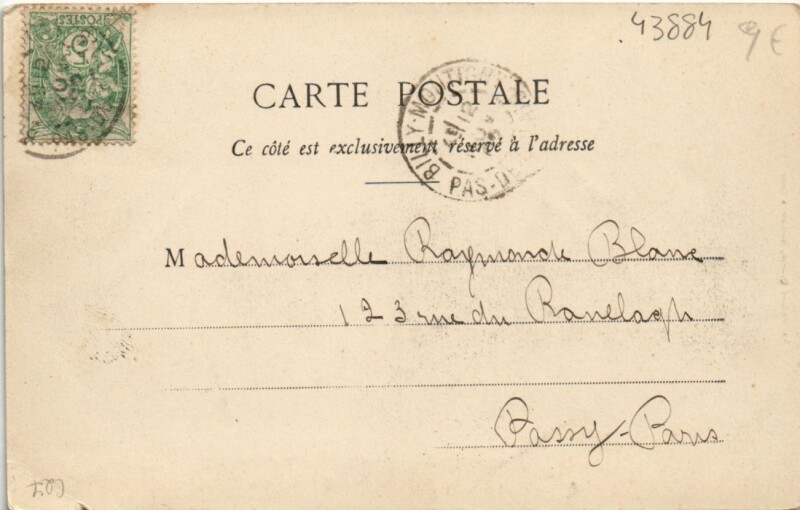 43884
9 €
POSTES
CARTE POSTALE
BILLY-MONTIGNY
PAS-D
Ce côté est exclusivement réservé à l'adresse
Mademoiselle Raymonde Blanc
123 rue du Ranelagh
Passy-Paris